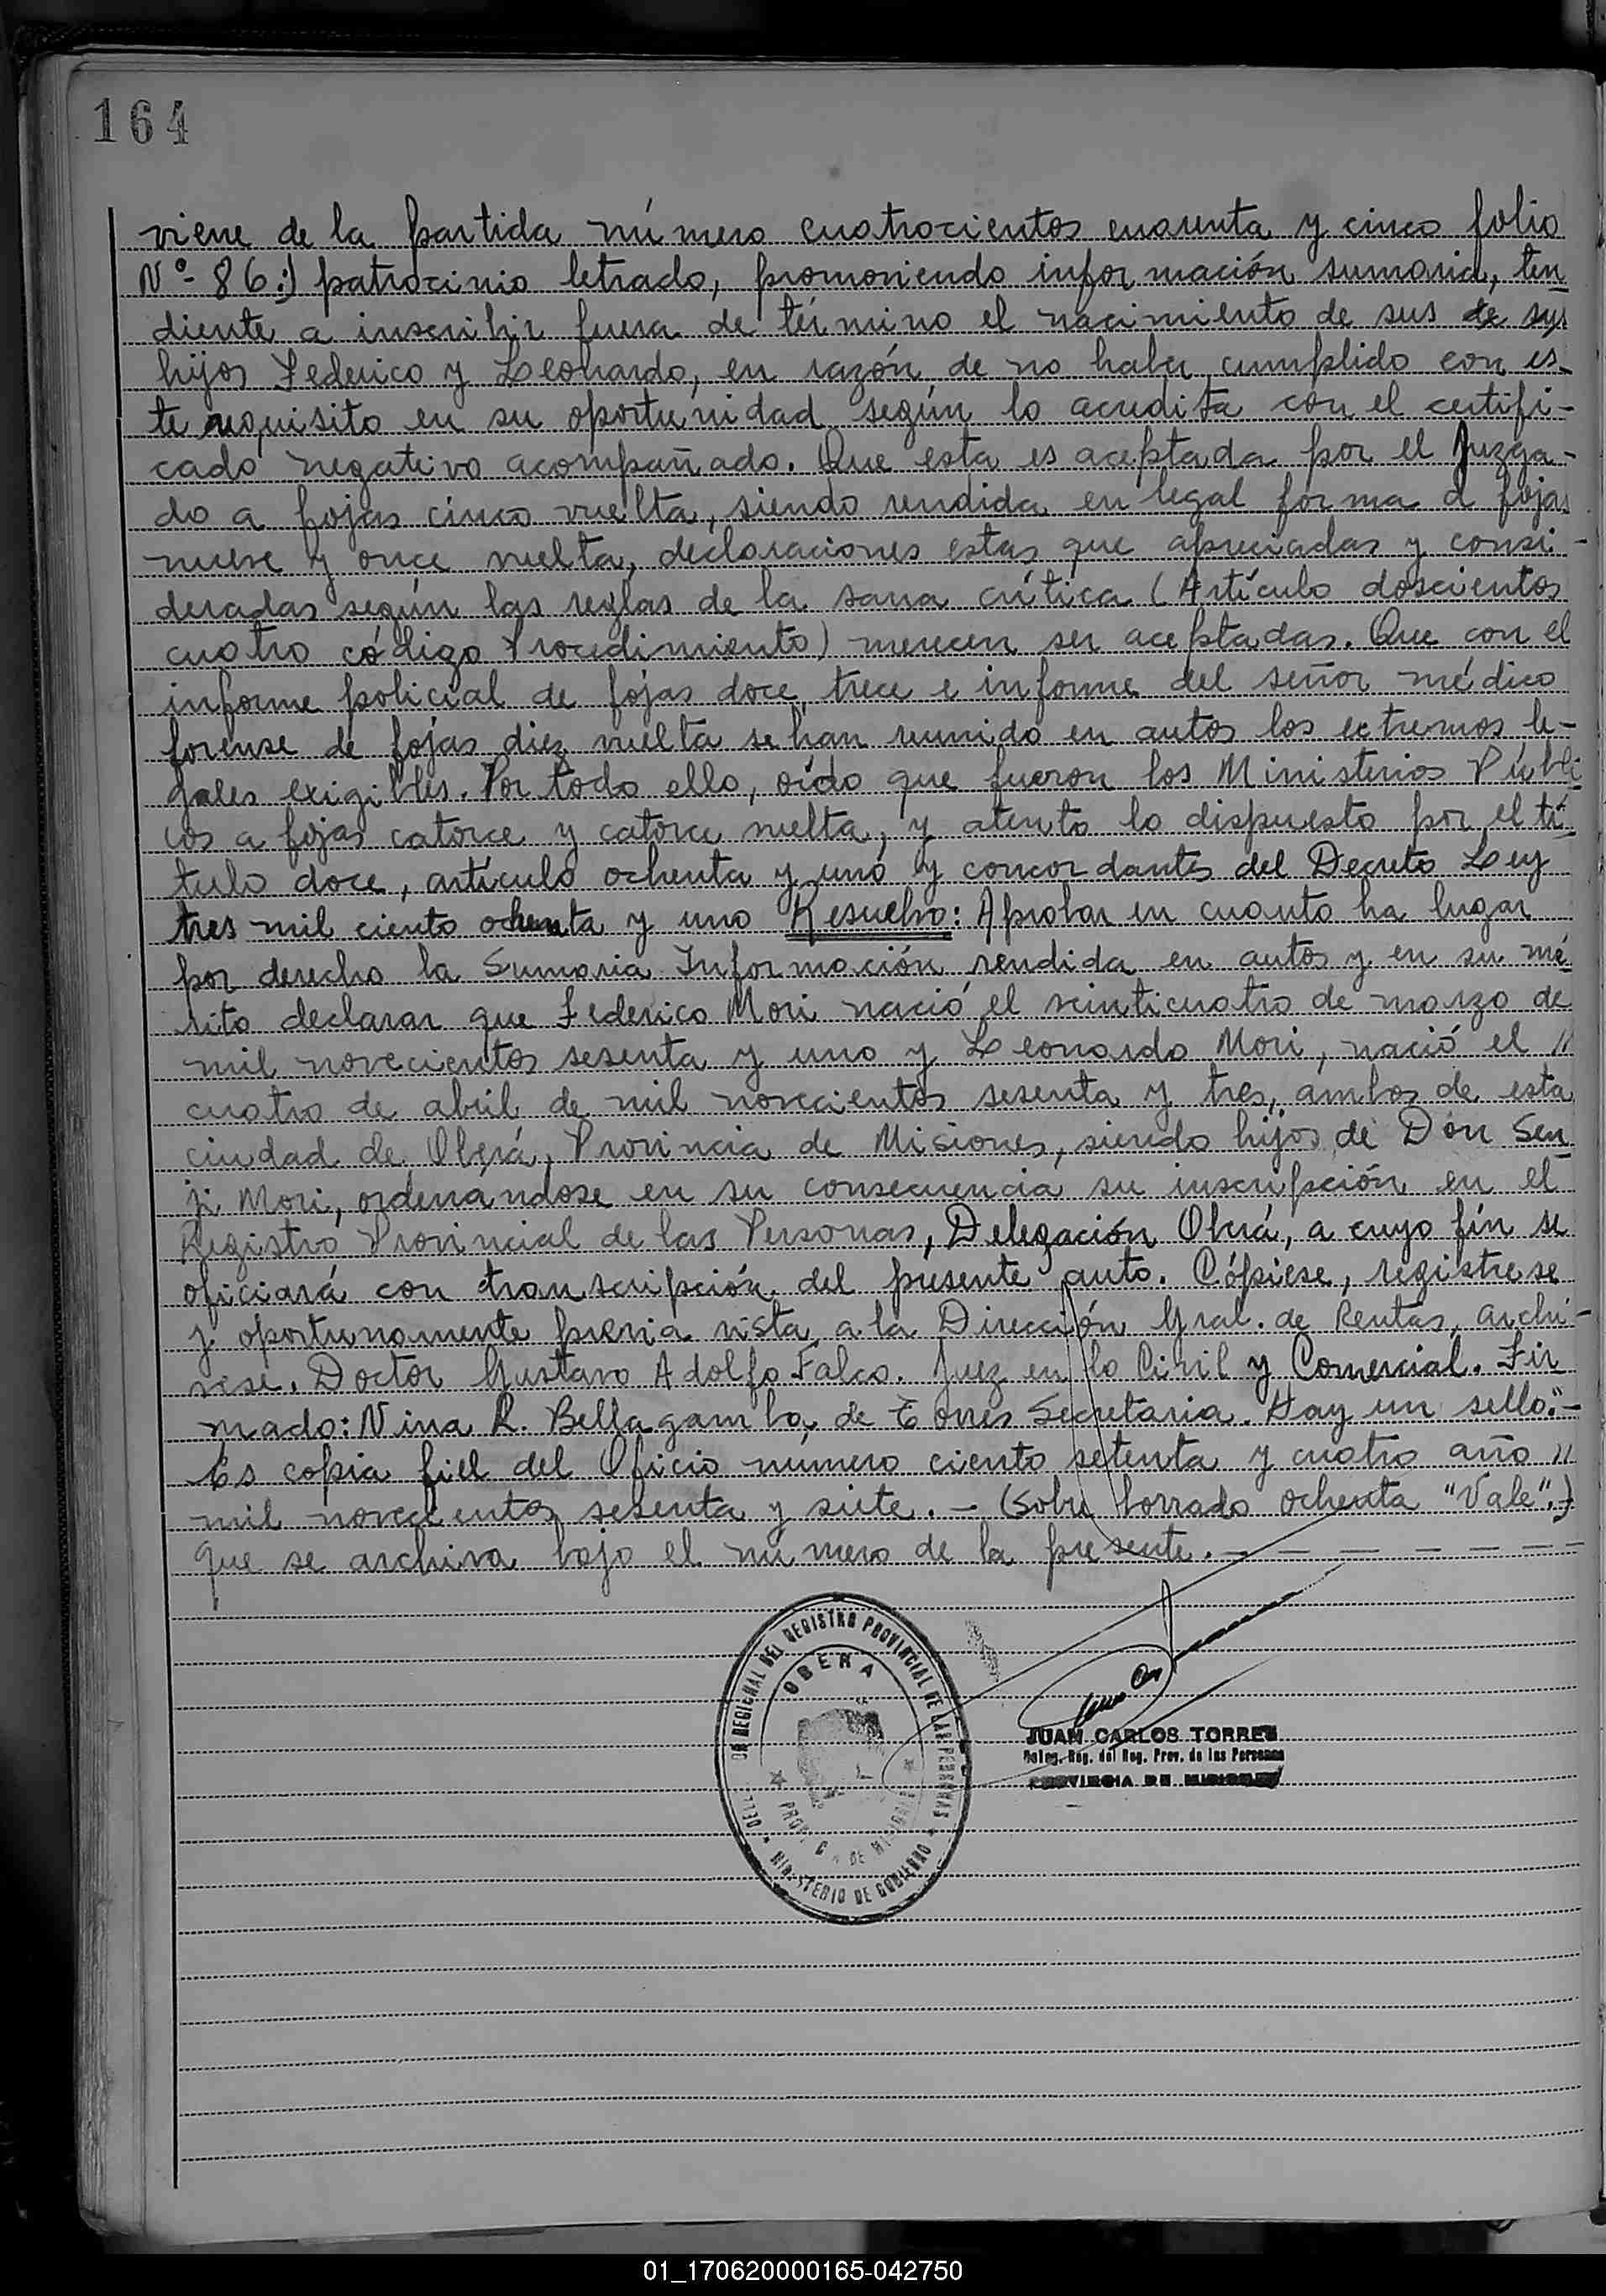 164
viene de la partida número cuatrocientos cuarenta y cinco folio
Nº- 86:) patrocinio letrado, promoviendo información sumaria, ten
diente a inscribir fuera de término el nacimiento de sus de sus
hijos Federico y Leonardo, en razón de no haber cumplido con es-
te requisito en su oportunidad según lo acredita con el certifi-
cado negativo acompañado. Que esta es aceptada por el Juzga-
do a fojas cinco vuelta, siendo rendida en legal forma a fojas
nueve y once vuelta, declaraciones estas que apreciadas y consi-
deradas según las reglas de la sana crítica (Artículo doscientos
cuatro código Procedimiento) merecen ser aceptadas. Que con el
informe policial de fojas doce, trece e informe del señor médico
forense de fojas diez vuelta se han reunido en autos los extremos le-
gales exigibles. Por todo ello, oído que fueron los Ministerios Públi
cos a fojas catorce y catorce vuelta, y atento lo dispuesto por el tí-
tulo doce, artículo ochenta y uno y concordantes del Decreto Ley
tres mil ciento ochenta y uno Resuelvo: Aprobar en cuanto ha lugar
por derecho la Sumaria Información rendida en autos y en su mé-
rito declarar que Federico Mori nació el veinticuatro de marzo de
mil novecientos sesenta y uno y Leonardo Mori, nació el //
cuatro de abril de mil novecientos sesenta y tres, ambos de esta
ciudad de Oberá, Provincia de Misiones, siendo hijos de Don Sen
ji Mori, ordenándose en su consecuencia su inscripción en el
Registro Provincial de las Personas, Delegación Oberá, a cuyo fín se
oficiará con transcripción del presente auto. Cópiese, registrese
y oportunamente previa vista a la Dirección Gral. de Rentas, archí-
vese. Doctor Gustavo Adolfo Falco. Juez en lo Civil y Comercial. Fir
mado: Nina R. Bellagamba de Torres Secretaria. Hay un sello."-
Es copia fiel del Oficio número ciento setenta y cuatro año //
mil novecientos sesenta y siete. - (Sobre borrado ochenta "Vale".)
que se archiva bajo el número de la presente. - - - - - - - -
REGIONAL DEL REGISTRO PROVINCIAL DE LAS PERSONAS
OBERA
DE MISIONES
MINISTERIO DE GOBIERNO
JUAN CARLOS TORRES
Deleg. Reg. del Reg. Prov. de las Personas
PROVINCIA DE MISIONES
01_170620000165-042750